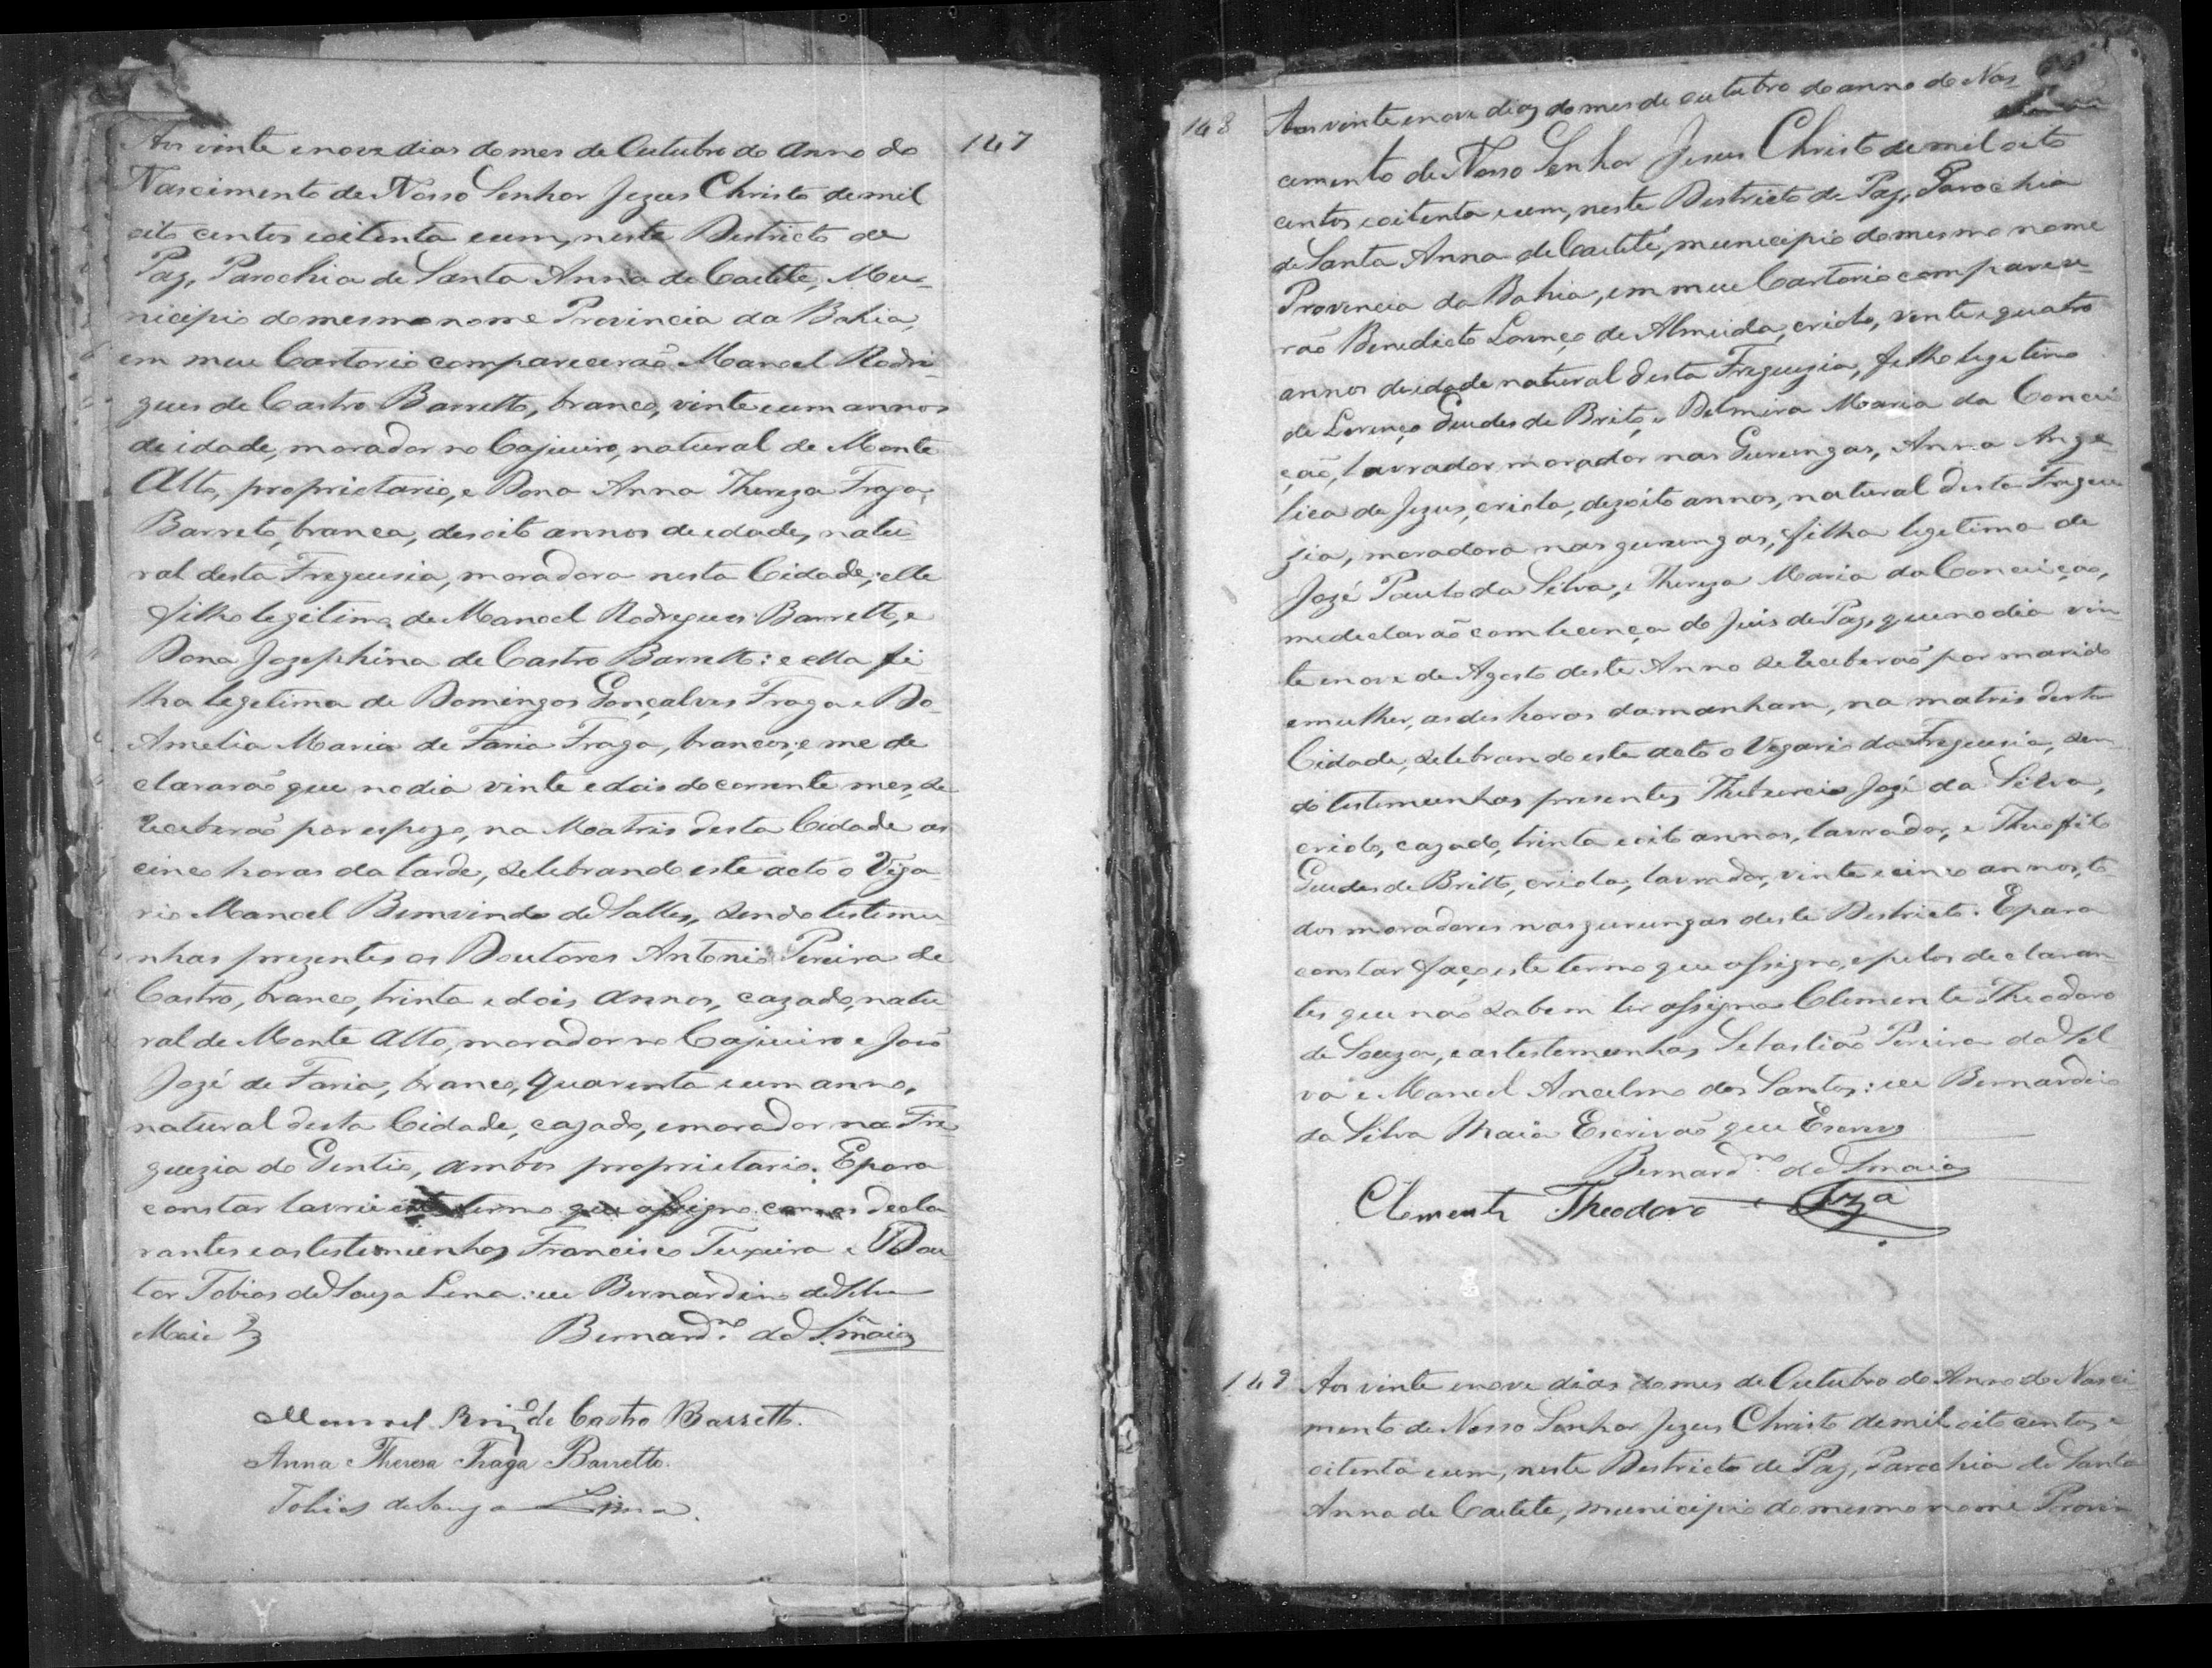 147
Aos vinte enove dias do mes de Outubro do Anno do
Nascimento de Nosso Senhor Jezus Christo de mil
oito centos eoitenta eum, neste Destricto de
Paz, Parochia de Santa Anna de Caetite, Mu-
nicipio do mesmo nome Provincia da Bahia,
em meu Cartorio comparecerão Manoel Rodri-
gues de Castro Barretto, branco, vinte eum annos
de idade, morador no Cajueiro, natural de Monte
Alto, proprietario, e Dona Anna Thereza Fraga
Barreto, branca, desoito annos de edade, natu-
ral desta Freguesia, moradora nesta Cidade; elle
filho legitimo de Manoel Rodregues Barretto, e
Dona Jozephina de Castro Barretto: e ella fi-
lha legetima de Domingos Gonçalves Fraga e Do-
Amelia Maria de Faria Fraga, brancos; e me de
clararão que no dia vinte edois do corrente mes, se
receberão por espozo, na Matris desta Cidade as
cinco horas da tarde, selebrando este acto o Viga-
rio Manoel Bemvindo de Salles, sendo testemu-
nhas prezentes os Doutores Antonio Pereira de
Castro, branco, trinta e dois annos, cazado, natu-
ral de Monte Alto, morador no Cajueiro e João
Jozé de Faria, branco, quarenta eum anno,
natural desta Cidade, cazado, emorador na Fre
guezia do Gentio, ambos proprietario. Epara
constar lavrei este termo que assigno com os decla
rantes eas testemunhas Francisco Teixeira e Dou
tor Tobias de Souza Lima: eu Bernardino da Silva
Maia
Bernard.no da S. Maia
Manoel Roiz de Castro Barretto.
Anna Theresa Fraga Barretto.
Tobias de Souza Lima.
148
Aos vinte enove dias do mes de outubro do anno do Nas-
cimento de Nosso Senhor Jesus Christo de mil oito
centos eoitenta eum, neste Destricto de Paz, Parochia
de Santa Anna de Caetité, municipio do mesmo nome
Provincia da Bahia, em meu Cartorio comparece-
rão Benedicto Lourenço de Almeida, criolo, vinte e quatro
annos de idade natural desta Freguezia, filho legetimo
de Lourenço Guedes de Brito, e Delmira Maria da Concei
ção, lavrador morador nas Gurungas, Anna Ange-
lica de Jezus, criola, dezoito annos, natural desta Fregue
zia, moradora nas gurungas, filha legetima de
Jozé Paulo da Silva, e Thereza Maria da Conceição,
me declarão com lecença do Juis de Paz, que no dia vin-
te enove de Agosto deste Anno se receberão por marido
emulher, as des horas da manham, na matris desta
Cidade, selebrando este acto o Vegario da Freguesia, sen-
do testemunhas presentes José da Silva,
criolo, cazado, trinta eoito annos, lavrador, e Theofilo
Guedes de Britto, criolo, lavrador, vinte e cinco annos, to
dos moradores nas gurungas deste Destricto. Epara
constar faço este termo que assigno, e pelos declaran-
tes que não sabem ler assigna Clemente Theodoro
de Souza, e as testemunhas Sebastião Pereira da Sil
va e Manoel Ancelmo dos Santos: eu Bernardino
da Silva Maia Escrivão que Escrevo
Bernard.no da S Maia
Clemente Theodoro Sza
149
Aos vinte enove dias do mes de Outubro do Anno do Nasci-
mento de Nosso Senhor Jezus Christo de mil oito centos e
oitenta eum, neste Destricto de Paz, Parochia de Santa
Anna de Caetite, municipio do mesmo nome Provin